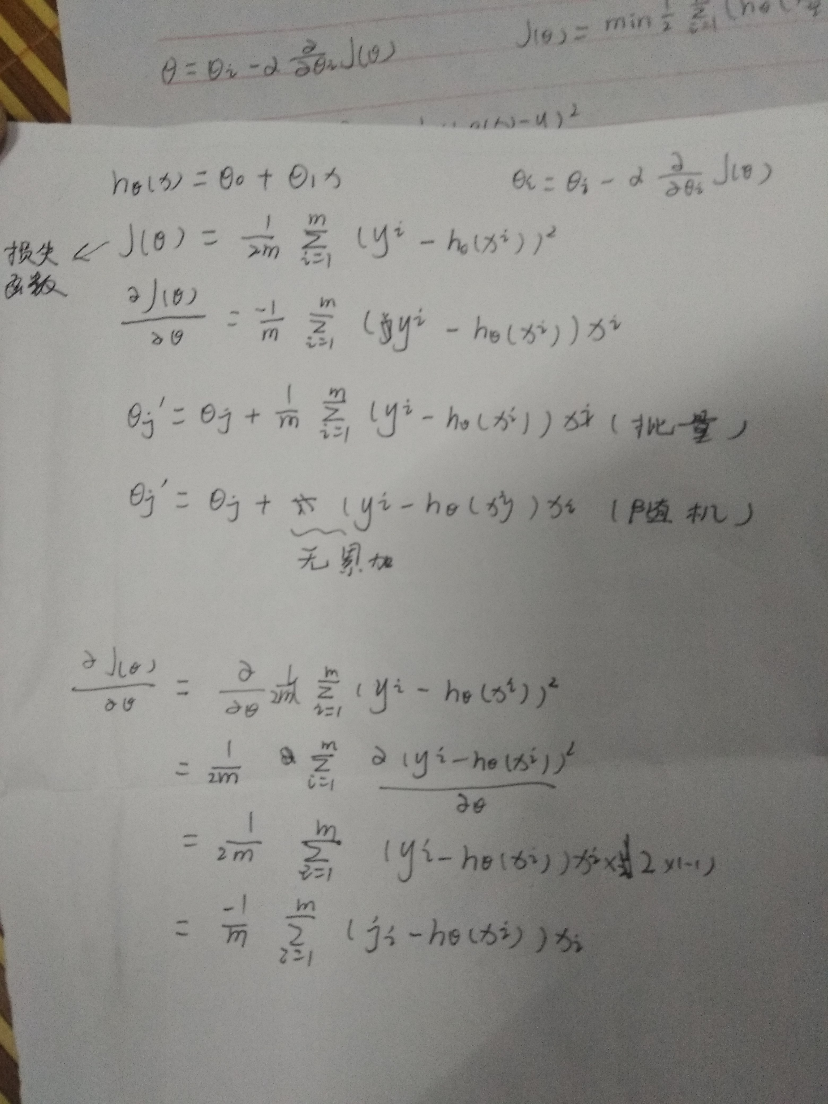 θ = θi - α ∂/∂θi J(θ)
J(θ) = min 1/2 Σ i=1 (hθ(
-y)²
hθ(x) = θ0 + θ1x
θi = θi - α ∂/∂θi J(θ)
损失函数 ← J(θ) = 1/2m Σ i=1 m (y^i - hθ(x^i))²
∂J(θ)/∂θ = -1/m Σ i=1 m (y^i - hθ(x^i)) x^i
θj' = θj + 1/m Σ i=1 m (y^i - hθ(x^i)) x^i (批量)
θj' = θj + (y^i - hθ(x^i)) xi (随机)
无累加
∂J(θ)/∂θ = ∂/∂θ 1/2m Σ i=1 m (y^i - hθ(x^i))²
= 1/2m Σ i=1 m ∂(y^i - hθ(x^i))²/∂θ
= 1/2m Σ i=1 m (y^i - hθ(x^i)) x^i × 2 × (-1)
= -1/m Σ i=1 m (yi - hθ(x^i)) xi